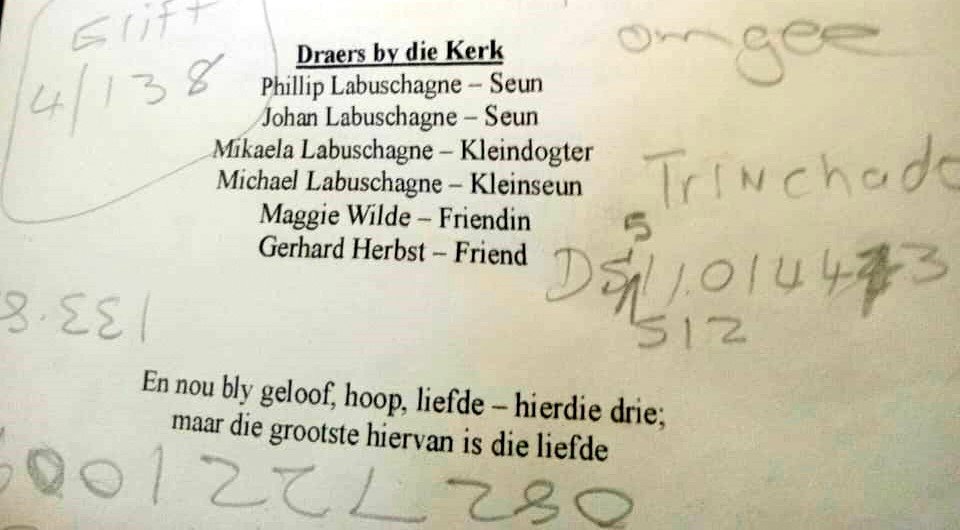 Glift
4/138
omgee
Draers by die Kerk
Phillip Labuschagne – Seun
Johan Labuschagne – Seun
Mikaela Labuschagne – Kleindogter
Michael Labuschagne – Kleinseun
Maggie Wilde – Friendin
Gerhard Herbst – Friend
TrINchado
5
512
En nou bly geloof, hoop, liefde – hierdie drie;
maar die grootste hiervan is die liefde